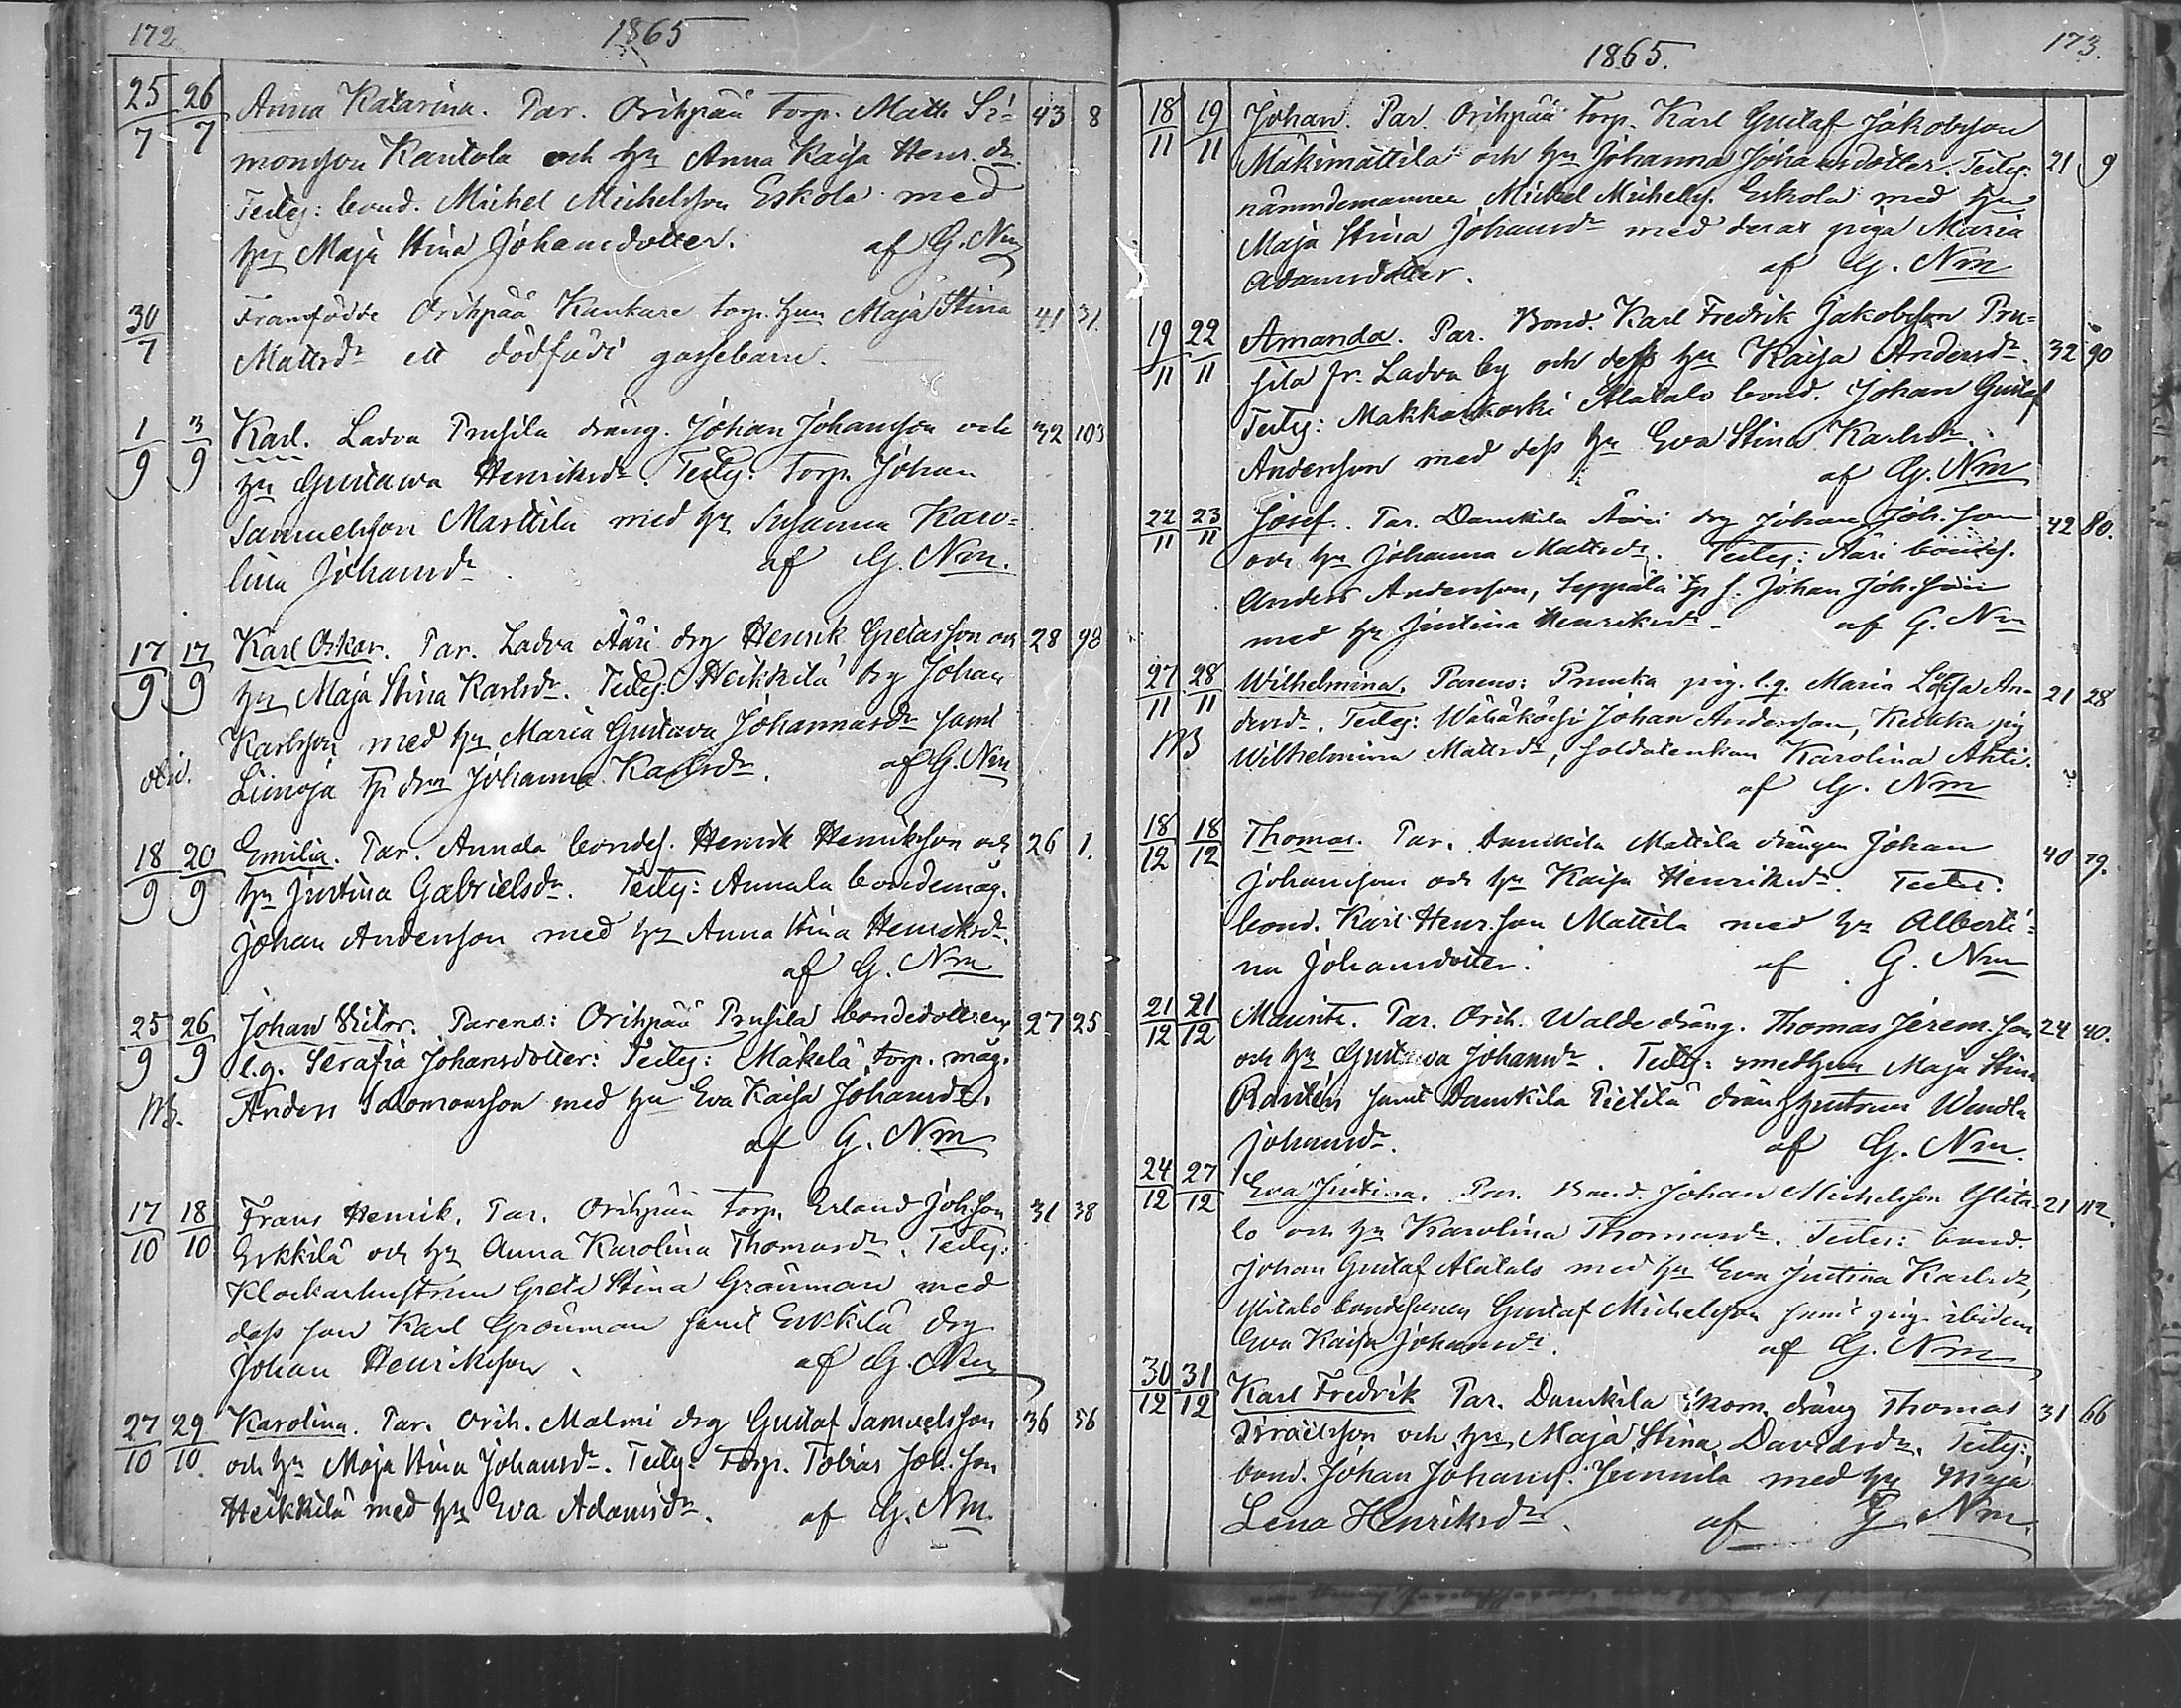 172
1865
25/7 26/7 Anna Katarina. Par. Orihpää torp. Matts Si- 43 8
monsson Kantola och hu Anna Kaisa Henr. dr.
Testes: bond. Michel Michelsson Eskola med
hu Maja Stina Johansdotter. af G. Nm
30/7 Framfödde Orihpää Kankare torp. hun Maja Stina 41 31.
Mattsdr ett dödfödt gossebarn.
1/9 3/9 Karl. Ladva Prusila dräng. Johan Johansson och 32 103
hu Gustawa Henriksdr. Testes: torp. Johan
Samuelsson Marttila med hu Susanna Karo-
lina Johansdr. af G. Nm.
17/9 17/9 Karl Oskar. Par. Ladva Ääri drg Henrik Gustafsson och 28 98
hu Maja Stina Karlsdr. Testes: Heikkilä drg Johan
Karlsson med hu Maria Gustava Johannasdr samt
Liinoja tp drn Johanna Karlsdr. af G. Nm
18/9 20/9 Emilia. Par. Annala bondes. Henrik Henriksson och 26 1.
hu Justina Gabrielsdr. Testes: Annala bondemåg.
Johan Andersson med hu Anna Stina Henriksdr.
af G. Nm
25/9 26/9 Johan Viktor. Parens: Orihpää Prusila bondedottren 27 25
l.g. Serafia Johansdotter: Testes: Mäkelä torp. måg.
NB. Anders Salomonsson med hu Eva Kaisa Johansdr.
af G. Nm
17/10 18/10 Frans Henrik. Par. Orihpää torp. Erland Johsson 31 38
Erkkilä och hu Anna Karolina Thomasdr. Testes:
Klockarhustrun Greta Stina Grönman med
dess son Karl Grönman samt Erkkilä drg
Johan Henriksson. af G. Nm
27/10 29/10. Karolina. Par. Orih. Malmi drg Gustaf Samuelsson 36 56
och hu Maja Stina Johansdr. Testes: Torp. Tobias Joh. son
Heikkilä med hu Eva Adamsdr. af G. Nm.
1865.
173.
18/11 19/11 Johan. Par. Orihpää torp. Karl Gustaf Jakobsson
Mäkimattila och hu Johanna Johansdotter. Testes: 21 9
nämndemannen Michel Michelss. Eskola med hu
Maja Stina Johansdr med deras piga Maria
Adamsdotter. af G. Nm
19/11 22/11 Amanda. Par. Bond. Karl Fredrik Jakobsson Pru-
sila fr. Ladva by och dess hu Kaisa Andersdr. 32 90
Testes: Makkarkoski Alatalo bond. Johan Gustaf
Andersson med dess hu Eva Stina Karlsdr.
af G. Nm
22/11 23/11 Josef. Par. Danskila Ääri drg Johan Joh. son 42 80.
och hu Johanna Mattsdr. Testes: Ääri bondes.
Anders Andersson, Seppälä tp s. Johan Joh. son
med hu Justina Henriksdr. af G. Nm
27/11 28/11 Wilhelmina. Parens: Prunka pig. l.g. Maria Lovisa An- 21 28
dersdr. Testes: Johan Andersson, Kukka pig
NB Wilhelmina Mattsdr, soldatenkan Karolina Ahti.
af G. Nm
18/12 18/12 Thomas. Par. Danskila Mattila drängen Johan
Johansson och hu Kaisa Henriksdr. Testes: 40 79.
bond. Karl Henr. son Mattila med hu Alberti-
na Johansdotter. af G. Nm
21/12 21/12 Maurits. Par. Orih. Walde dräng. Thomas Jerem. son 24 40.
och hu Gustava Johansdr. Testes: smedhun Maja Stina
Rantén samt Danskila Pietilä dränghustrun Wendla
Johansdr. af G. Nm.
24/12 27/12 Eva Justina. Par. Bond. Johan Michelsson Ylita- 21 112.
lo och hu Karolina Thomasdr. Testes: bond.
Johan Gustaf Alatalo med hu Eva Justina Karlsdr,
Ylitalo bondesonen Gustaf Michelsson samt pig. ibidem
Eva Kaisa Johansdr. af G. Nm
30/12 31/12 Karl Fredrik Par. Danskila inkom. dräng Thomas 31 66
Israelsson och hu Maja Stina Davidsdr. Testes:
bond. Johan Johanss. Junnila med hu Maja
Lena Henriksdr. af G. Nm.